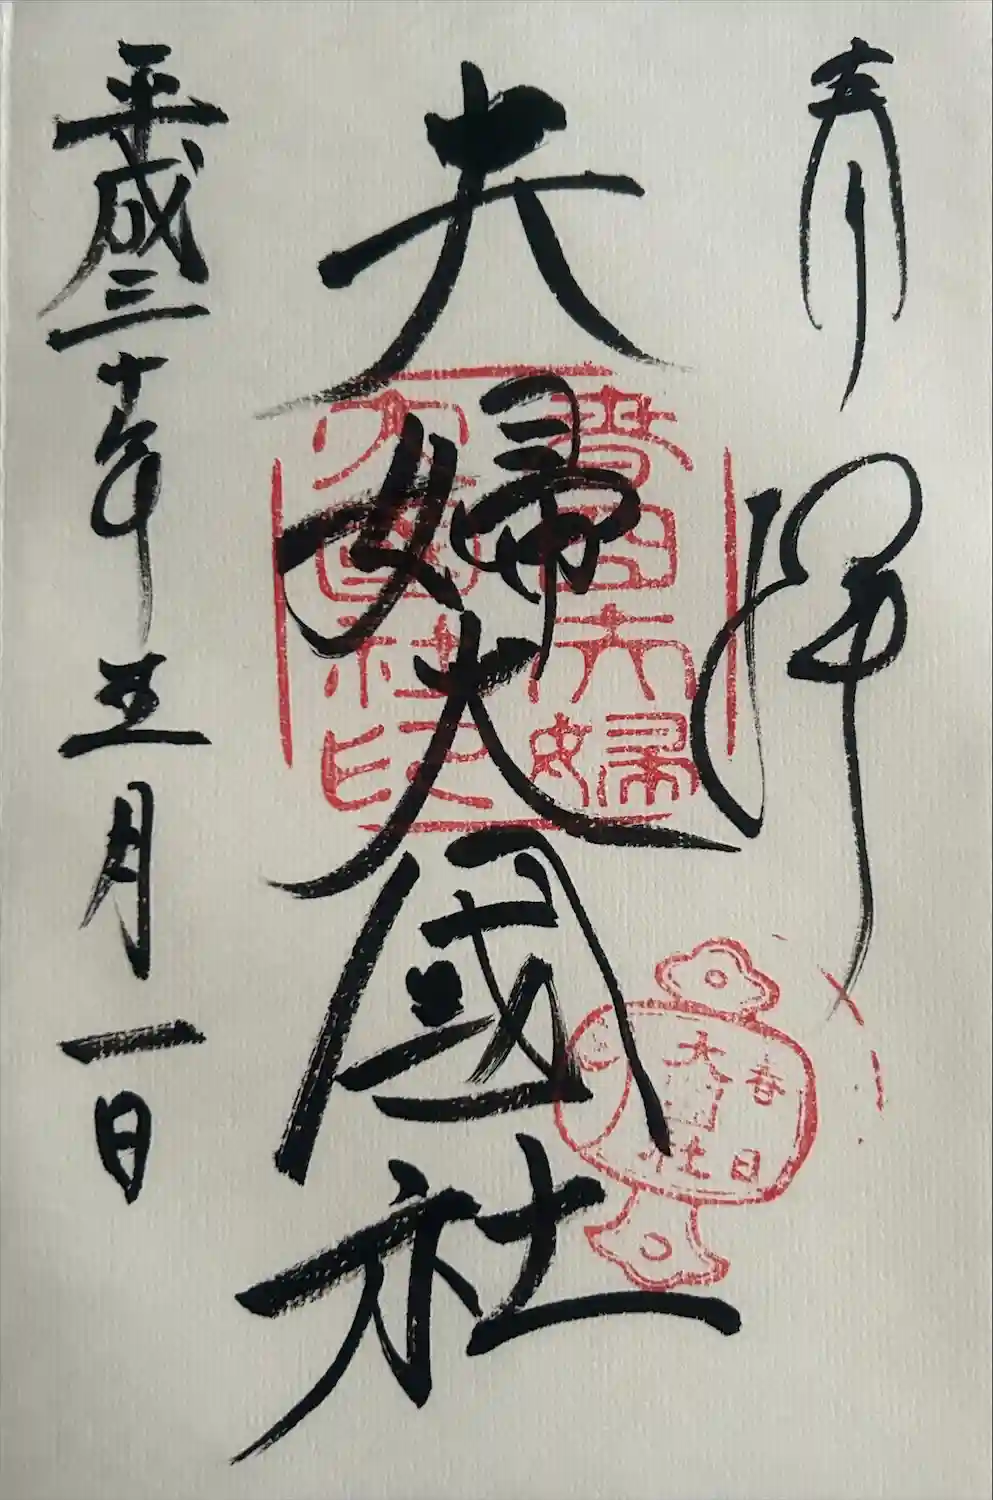 奉拝
夫婦大國社
春日夫婦
大國社印
春日
大國社
平成三十年五月一日